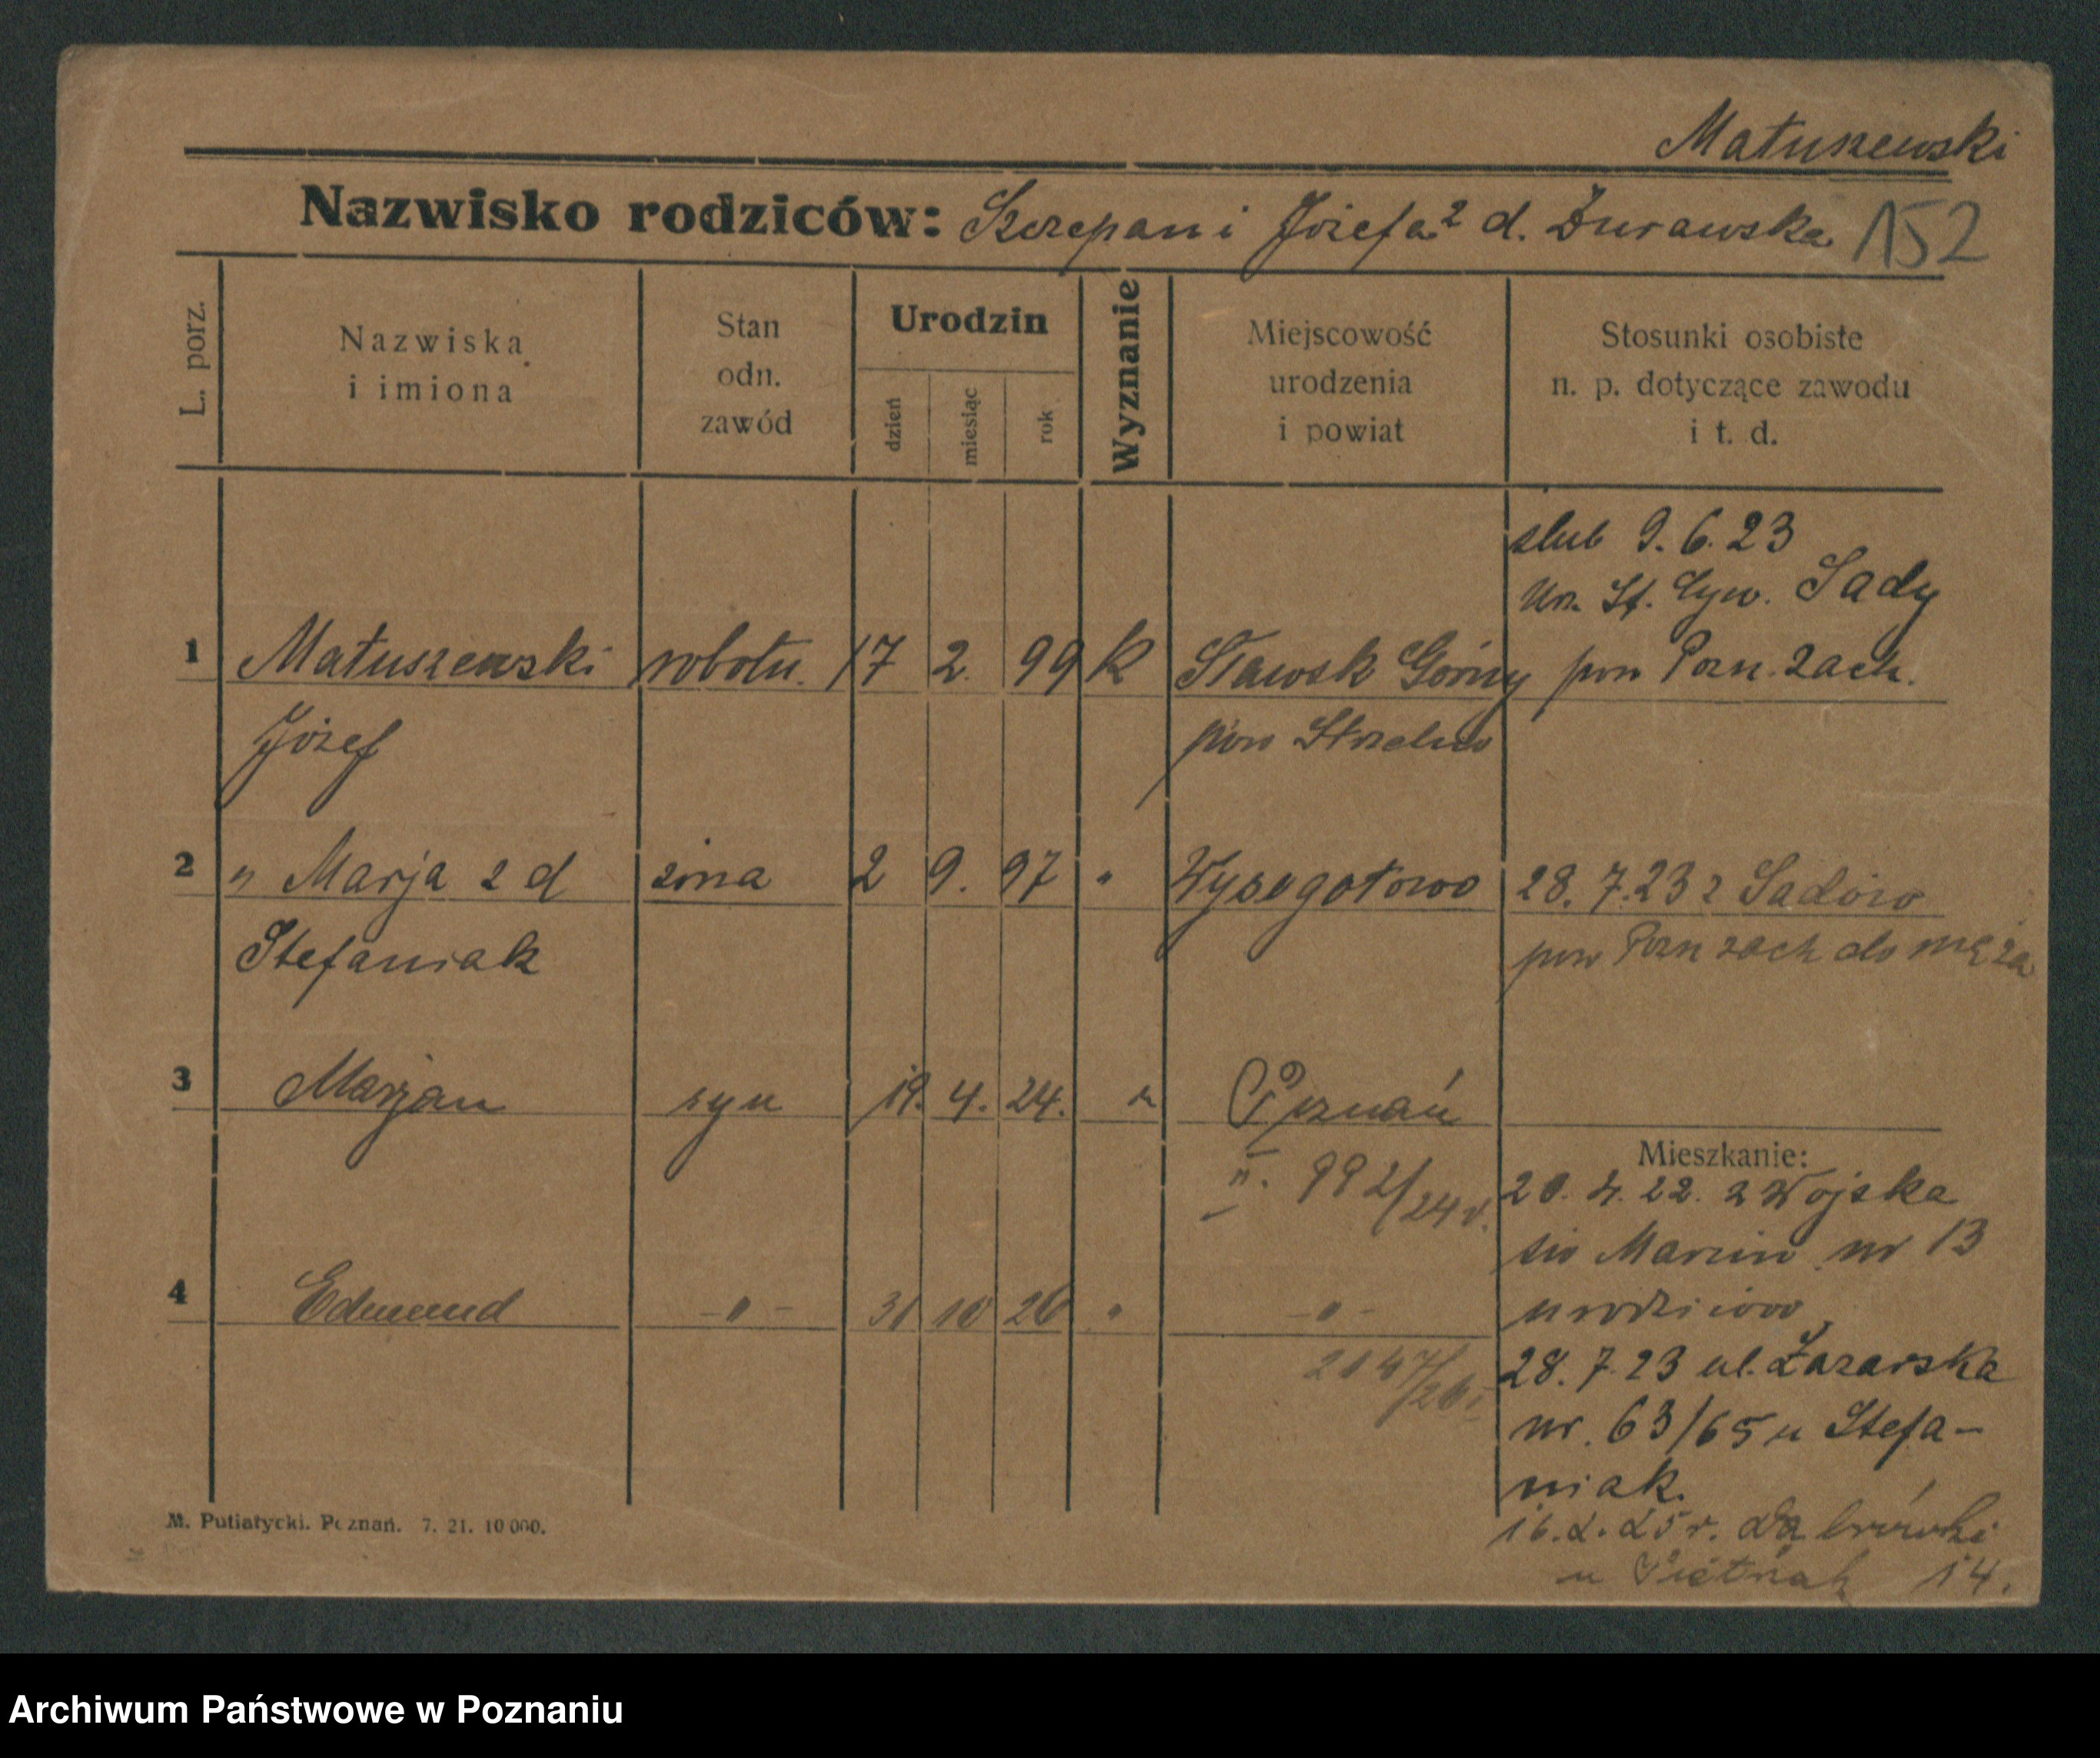 Matuszewski
Nazwisko rodziców: Szczepan i Józefa z d. Żurawska 152
L. porz.
Nazwiska
i imiona
Stan
odn.
zawód
Urodzin
dzień
miesiąc
rok
Wyznanie
Miejscowość
urodzenia
i powiat
Stosunki osobiste
n. p. dotyczące zawodu
i t. d.
ślub 9. 6. 23
Urz. St. Cyw. Sady
1 Matuszewski robotn. 17 2. 99 k Sławsk Górny pow Pozn. zach.
Józef pow Strzelno
2 " Marja z d żona 2 9. 97 " Wysogotowo 28. 7. 23 z Sadów
Stefaniak pow Pozn zach do męża
3 Marjan syn 19. 4. 24. " Poznań
Mieszkanie:
II. 992/24 r.
20. 4. 22. z Wojska
św Marcin nr 13
u rodziców
4 Edmund -"- 31 10 26 " -"-
2147/26
28. 7. 23 ul. Łazarska
nr. 63/65 u Stefa-
niak.
16. 2. 25 r. Dąbrówki
u 14.
M. Putiatycki. Poznań. 7. 21. 10 000.
Archiwum Państwowe w Poznaniu